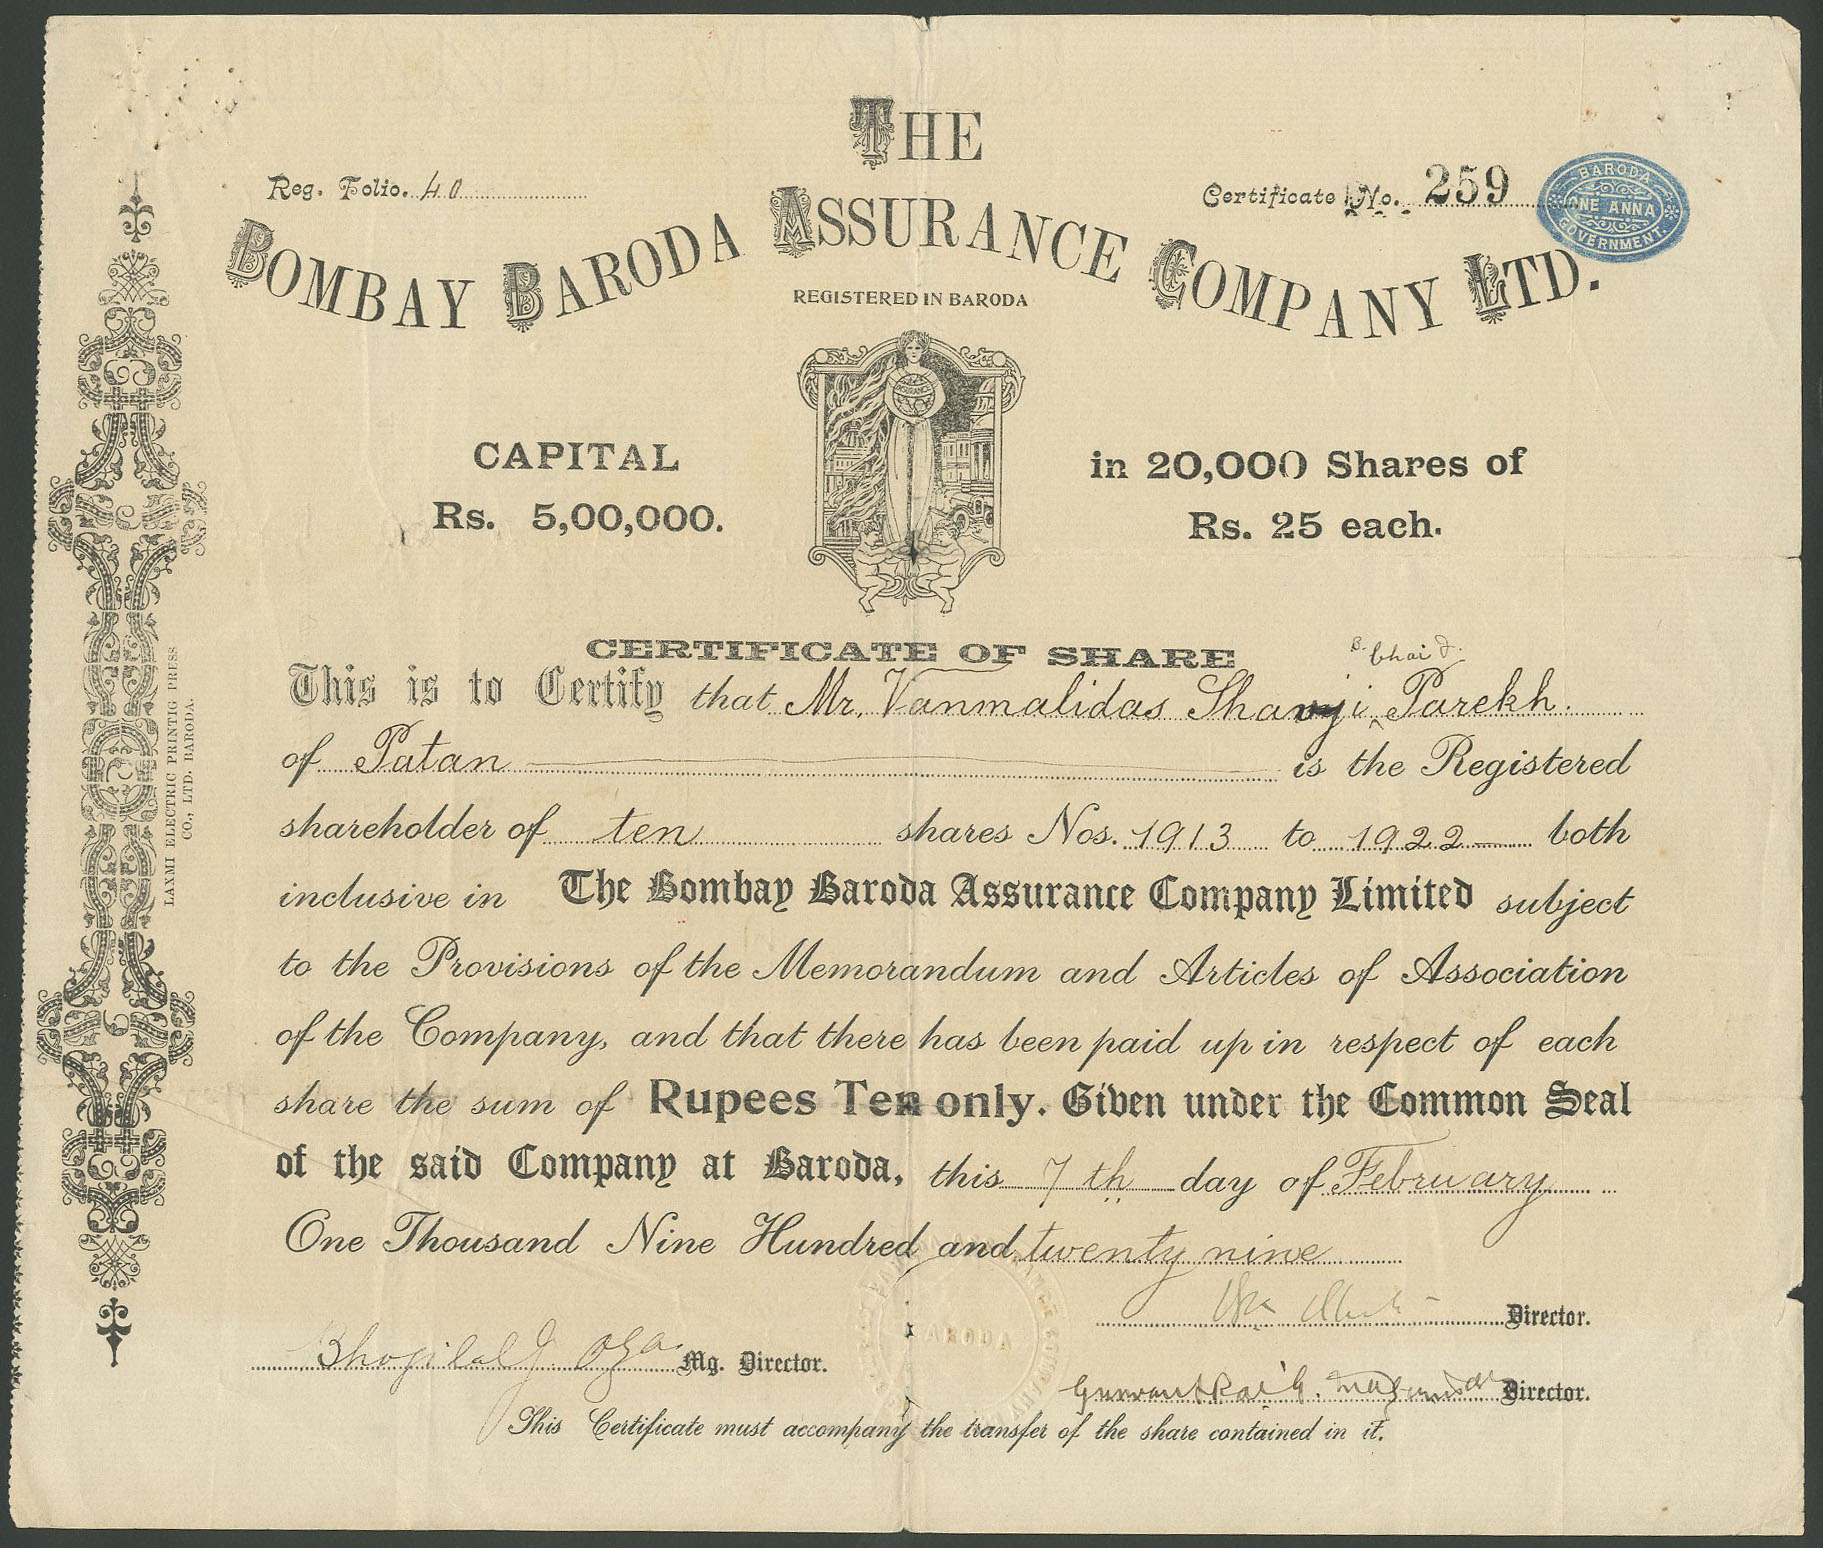 THE
Reg. Folio. 40
Certificate No. 259
BARODA
ONE ANNA
GOVERNMENT.
BOMBAY BARODA ASSURANCE COMPANY LTD.
REGISTERED IN BARODA
INSURANCE
CAPITAL
Rs. 5,00,000.
in 20,000 Shares of
Rs. 25 each.
CERTIFICATE OF SHARE
bhai
This is to Certify that Mr. Vanmalidas Shamji Parekh.
of Patan is the Registered
shareholder of ten shares Nos. 1913 to 1922 both
inclusive in The Bombay Baroda Assurance Company Limited subject
to the Provisions of the Memorandum and Articles of Association
of the Company, and that there has been paid up in respect of each
share the sum of Rupees Ten only. Given under the Common Seal
of the said Company at Baroda, this 7th day of February
One Thousand Nine Hundred and twenty nine
Director.
Bhogilal J. Oza Mg. Director.
Gunvantrai G. Mazumdar Director.
This Certificate must accompany the transfer of the share contained in it.
LAXMI ELECTRIC PRINTIG PRESS
CO., LTD. BARODA.